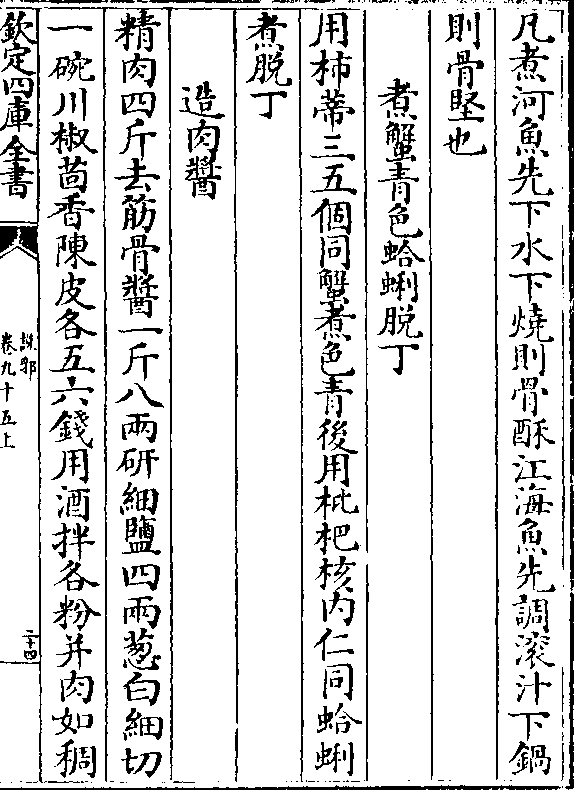 凡煮河魚先下水下燒則骨酥江海魚先調滾汁下鍋
則骨堅也
煮蟹青色蛤蜊脱丁
用柿蒂三五個同蟹煮色青後用枇杷核内仁同蛤蜊
煮脱丁
造肉醬
精肉四斤去筋骨醬一斤八兩研細鹽四兩葱白細切
一碗川椒茴香陳皮各五六錢用酒拌各粉并肉如稠
欽定四庫全書
説郛
卷九十五上
二十四